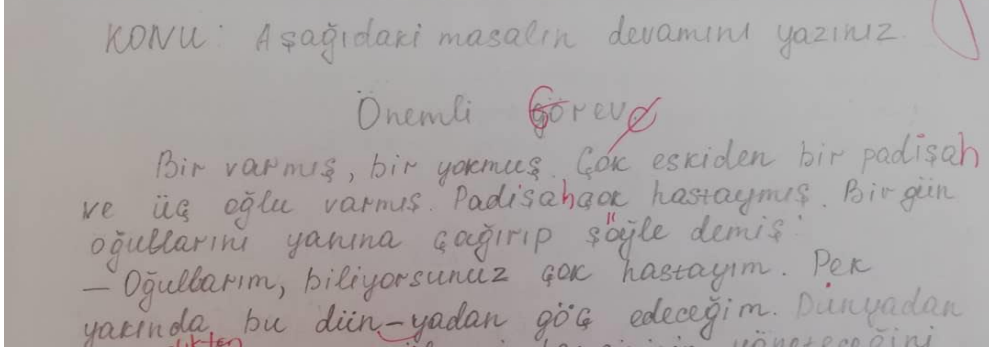 KONU: Aşağıdaki masalın devamını yazınız.
Önemli Görev
Bir varmış, bir yokmuş. Çok eskiden bir padişah
ve üç oğlu varmış. Padişah çok hastaymış. Bir gün
oğullarını yanına çağırıp şöyle demiş:
– Oğullarım, biliyorsunuz çok hastayım. Pek
yakında bu dün-yadan göç edeceğim. Dünyadan
yöneteceğini